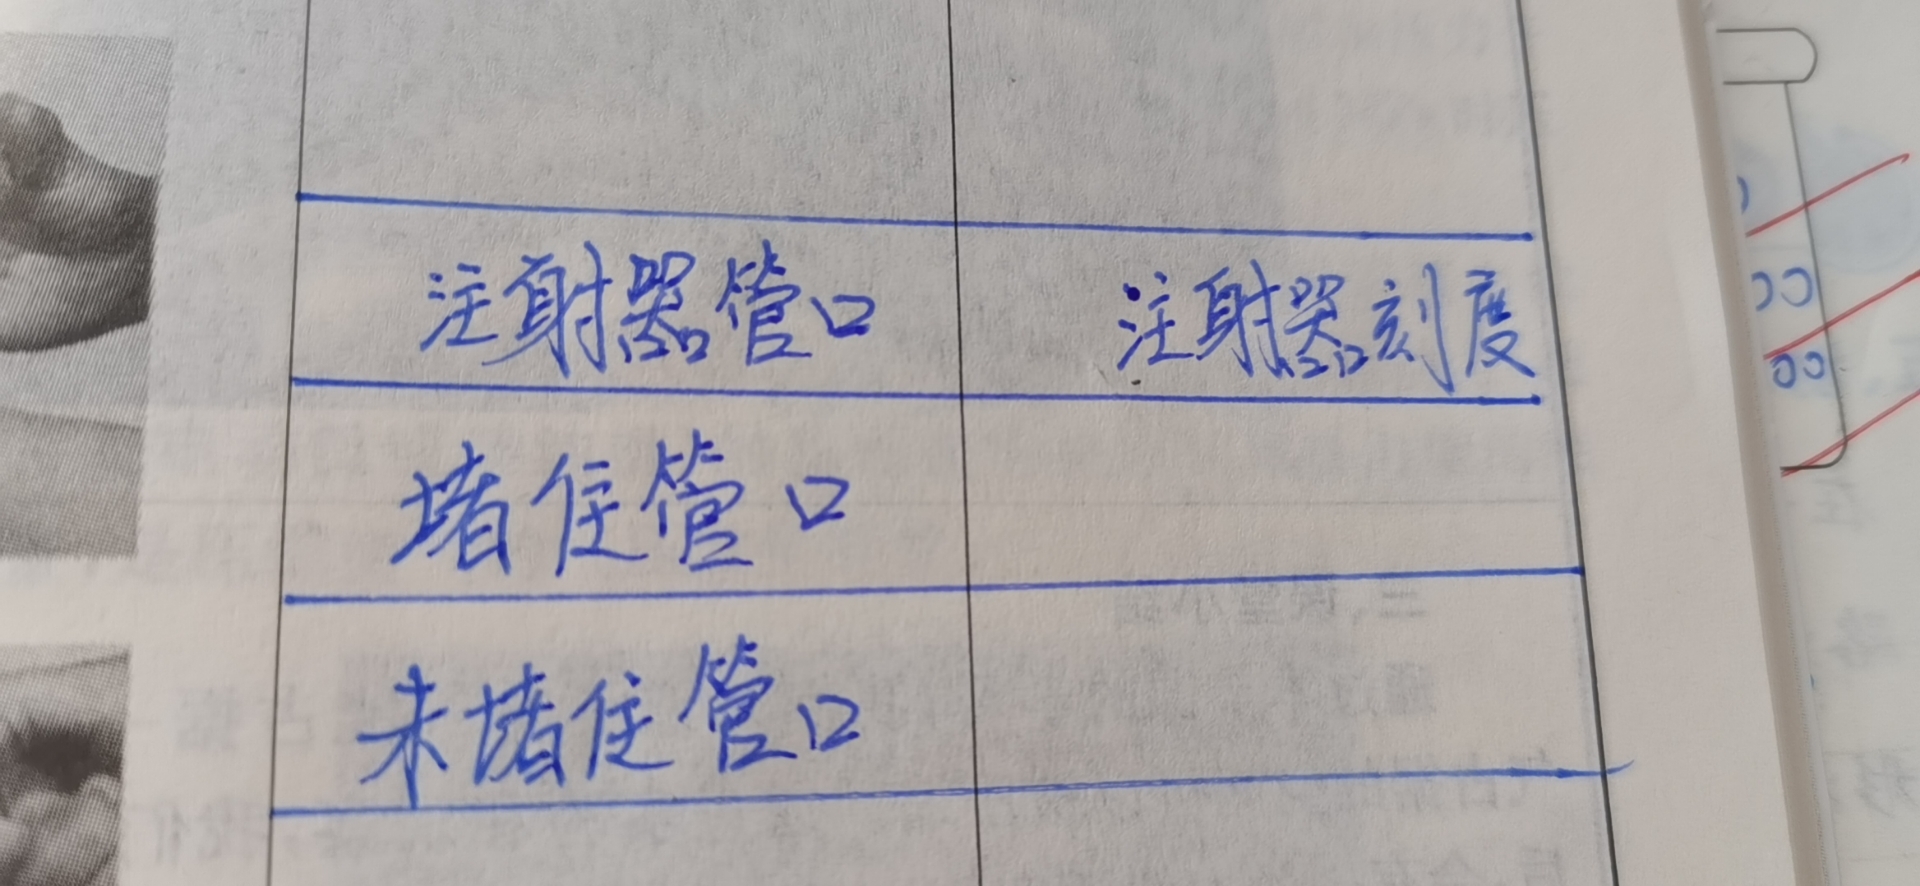 注射器管口 注射器刻度
堵住管口
未堵住管口